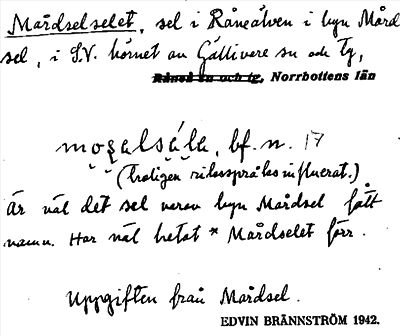 Mårdselselet, sel i Råneälven i byn Mård
sel, i S.V. hörnet av Gällivere sn och tg,
Råneå sn och tg, Norrbottens län
bf. n. 17
(Troligen riksspråksinfluerat.)
Är väl det sel varav byn Mårdsel fått
namn. Har väl hetat * Mårdselet förr.
Uppgiften från Mårdsel.
EDVIN BRÄNNSTRÖM 1942.